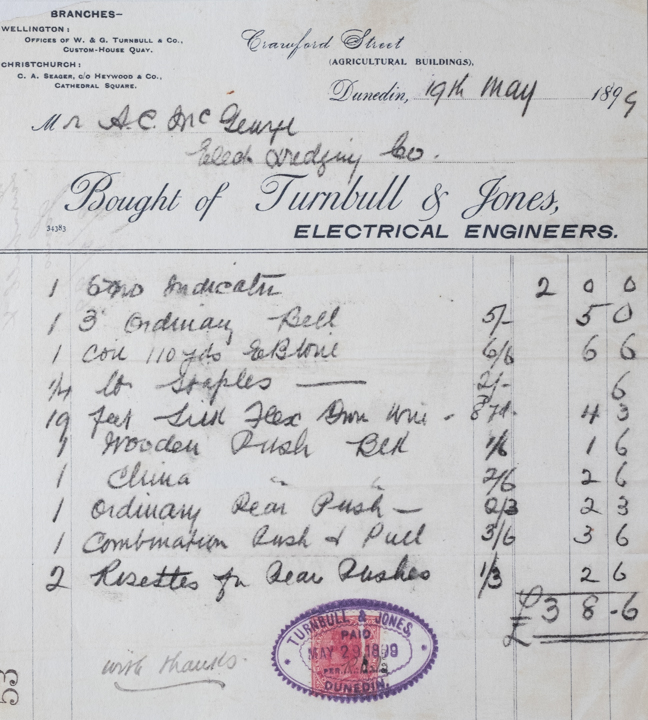 BRANCHES—
WELLINGTON:
OFFICES OF W. & G. TURNBULL & CO.,
CUSTOM-HOUSE QUAY.
CHRISTCHURCH:
C. A. SEAGER, C/O HEYWOOD & CO.,
CATHEDRAL SQUARE.
Crawford Street
(AGRICULTURAL BUILDINGS),
Dunedin, 19th May 1899
Mr A.C. McGeorge
Elect Dredging Co.
Bought of Turnbull & Jones,
34383
ELECTRICAL ENGINEERS.
1 Indicator 2 0 0
1 3" Ordinary Bell 5/- 5 0
1 Coil 110 yds 6/6 6 6
1/4 lb Staples — 2/- 6
19 feet Silk Flex Wire - 4 3
1 Wooden Push 1/6 1 6
1 China " " 2/6 2 6
1 Ordinary Pear Push — 2/3 2 3
1 Combination Push & Pull 3/6 3 6
2 Rosettes for Pear Pushes 1/3 2 6
£3 8-6
TURNBULL & JONES,
PAID
MAY 29 1899
PER
DUNEDIN.
with thanks.
53